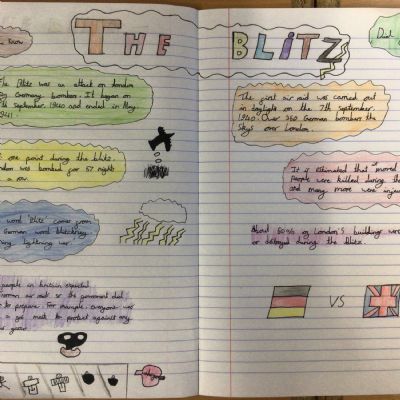 THE BLITZ
Know
Did
The Blitz was an attack on London
by Germany bombers. It began on
7th September 1940 and ended in May
1941
one point during the blitz,
London was bombed for 57 nights
a row.
word 'Blitz' comes from
German word blitzkrieg
lightning war.
people in britain expected
German air raids so the goverment did
to prepare. For example, everyone was
a gas mask to protect against any
gases
The first air raid was carried out
in daylight on the 7th September
1940. Over 350 German bombers the
skys over London.
It is estimated that
people were killed during the
and many more were
About 60% of London's buildings were
or destroyed during the Blitz.
VS